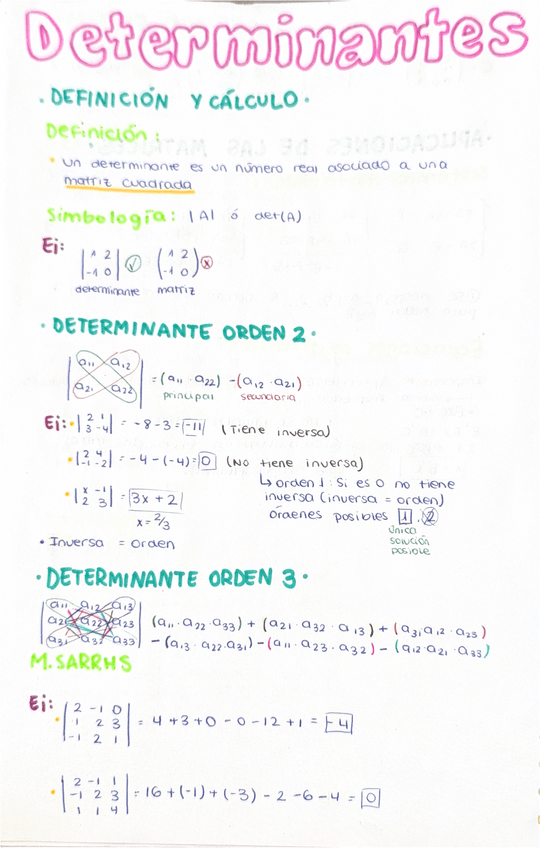 Determinantes
· DEFINICIÓN Y CÁLCULO ·
Definición:
• Un determinante es un número real asociado a una
matriz cuadrada
Simbología: |A| ó det(A)
Ej:
| 1 2 | ( 1 2 )
| -1 0 | ✓ ( -1 0 ) x
determinante matriz
· DETERMINANTE ORDEN 2 ·
| a11 a12 |
| a21 a22 | = (a11 · a22) - (a12 · a21)
principal secundaria
Ej: • | 2 1 |
| 3 -4 | = -8 - 3 = -11 (Tiene inversa)
• | 2 4 |
| -1 -2 | = -4 - (-4) = 0 (No tiene inversa)
↳ orden 1: Si es 0 no tiene
inversa (inversa = orden)
órdenes posibles 1, 2
única
solución
posible
• | x -1 |
| 2 3 | = 3x + 2
x = 2/3
• Inversa = orden
· DETERMINANTE ORDEN 3 ·
| a11 a12 a13 |
| a21 a22 a23 | (a11 · a22 · a33) + (a21 · a32 · a13) + (a31 a12 · a23)
| a31 a32 a33 | - (a13 · a22 a31) - (a11 · a23 · a32) - (a12 · a21 · a33)
M. SARRHS
Ej:
• | 2 -1 0 |
| 1 2 3 | = 4 + 3 + 0 - 0 - 12 + 1 = -4
| -1 2 1 |
• | 2 -1 1 |
| -1 2 3 | = 16 + (-1) + (-3) - 2 - 6 - 4 = 0
| 1 1 4 |